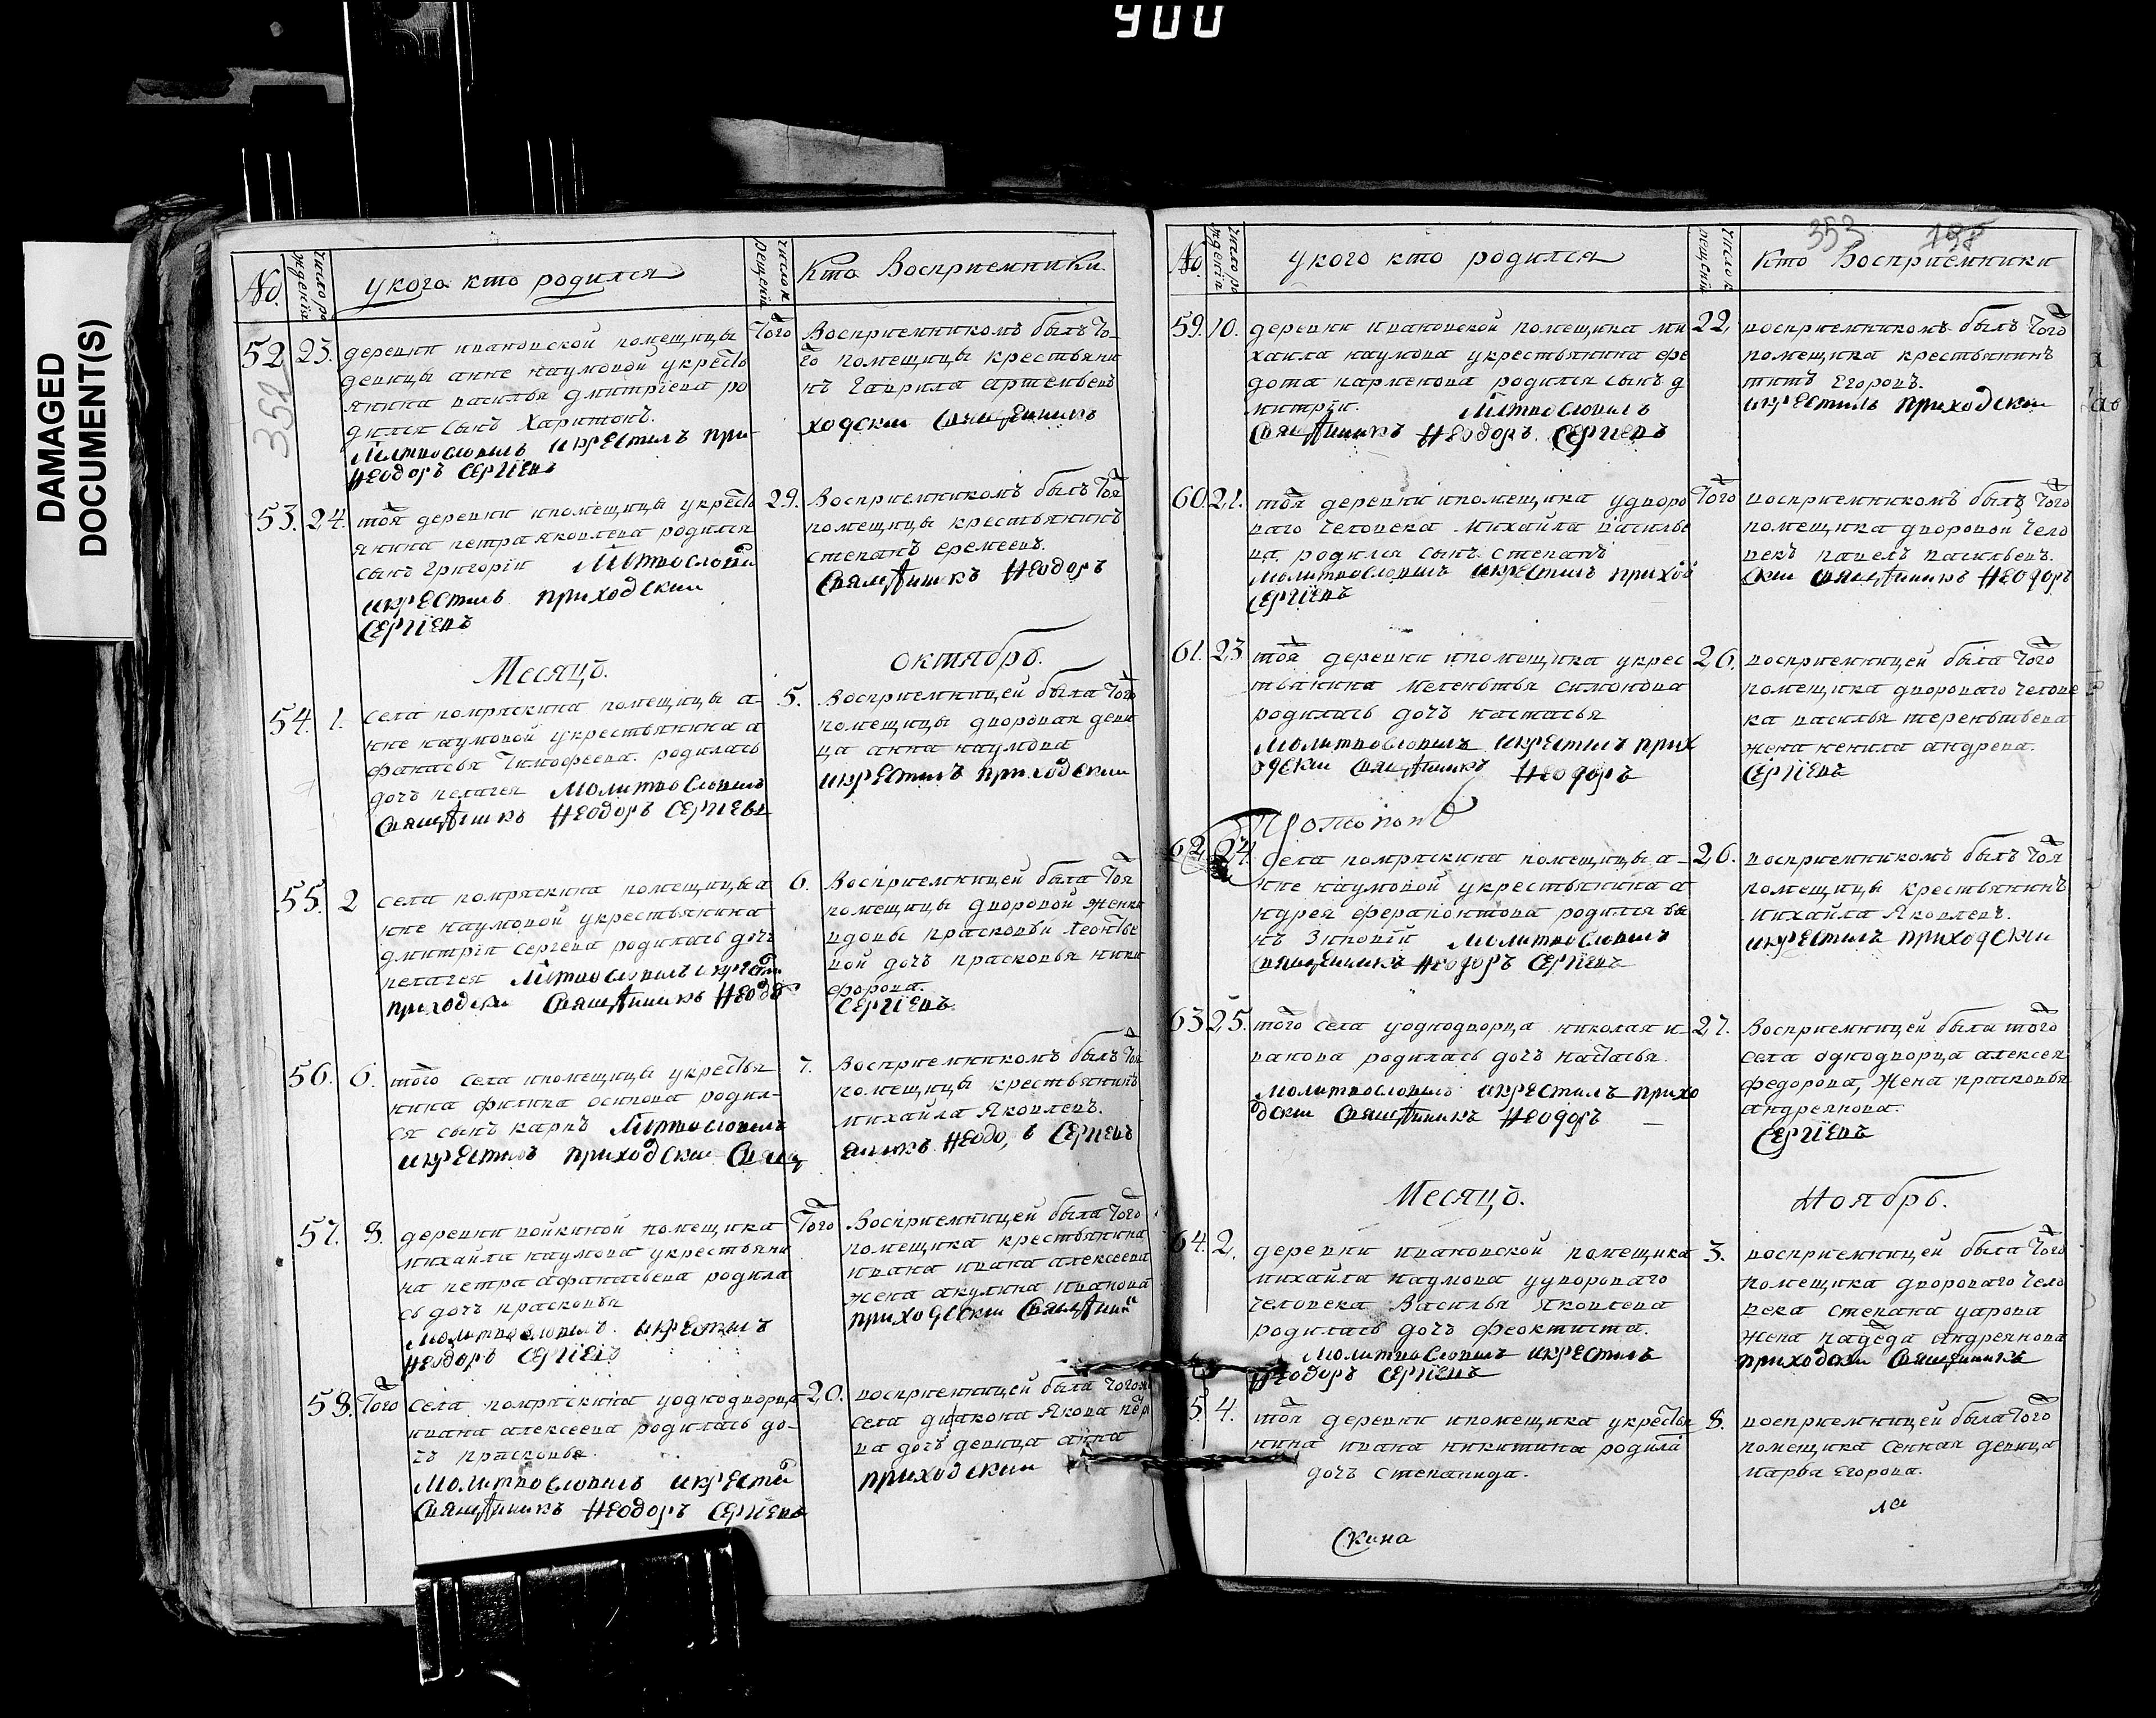 900
DAMAGED
DOCUMENT(S)
352
№ число рождения у кого кто родился число крещения Кто Восприемники
52 23. деревни ивановской помещицы
девицы анне наумовой укресть
янина василья дмитрїева ро
дился сынъ Харитонъ.
Млтвословилъ икрестилъ при-
Ѳеодоръ Сергїевъ
Того
Восприемникомъ былъ то-
го помещицы крестьяни
нъ Гаврила артемьевъ
ходски Священникъ
53. 24. тоя деревни ипомещицы укресть
янина петра яковлева родился
сынъ григорїи Млтвослови
икрестилъ приходскии
Сергїевъ
29. Восприемникомъ былъ тоя
помещицы крестьянинъ
степанъ еремеевъ.
Священникъ Ѳеодоръ
Месяцъ. октябрь.
54. 1. села помряскина помещицы а-
нне наумовой укрестьянина а
фанасья тимофеева. родилась
дочь пелагея Молитвословилъ
Священникъ Ѳеодоръ Сергїевъ
5. Восприемницей была того
помещицы дворовая деви
ца анна наумова
икрестилъ приходскии
55. 2 села помряскина помещицы а
нне наумовой укрестьянина
дмитрїя сергева родилась дочь
пелагея Млтвословилъ икрести
приходски Священникъ Ѳеодо
6. Восприемницей была тоя
помещицы дворовой женки
вдовы прасковьи леонтье
вой дочь прасковья ники
форова.
Сергїевъ
56. 6. того села ипомещицы укрестья
нина филипа осипова родил-
ся сынъ карпъ Млтвословилъ
икрестилъ приходскии Свящ
7. Восприемникомъ былъ тоя
помещицы крестьянинъ
михайла Яковлевъ.
енникъ Ѳеодоръ Сергїевъ
57. 8. деревни войкиной помещика
михайла наумова укрестьяни
на петра афанасьева родила
сь дочь прасковья
Молитвословилъ икрестилъ
Ѳеодоръ Сергїевъ
Того
Восприемницей была того
помещика крестьянина
ивана ивана алексеева
жена акулина иванова
приходскии Священни
58. Того села помряскина уоднодворца
ивана алексеева родилась до-
чь прасковья.
Молитвословилъ икрести
Священникъ Ѳеодоръ Сергїевъ
20. восприемницей была того
села дьякона якова
ва дочь девица анна
приходскии
353
№ число рождения у кого кто родился число крещения Кто Восприемники
59. 10. деревни ивановской помещика ми
хаила наумова укрестьянина фе
дота парменова родился сынъ д
митрїи. Млтвословилъ
Священникъ Ѳеодоръ Сергїевъ
22. восприемникомъ былъ того
помещика крестьянинъ
титъ Егоровъ.
икрестилъ приходскии
60. 21. тоя деревни ипомещика удворо
ваго человека михайла василье
ва родился сынъ степанъ
Молитвословилъ икрестилъ приход
Сергїевъ
Того
восприемникомъ былъ того
помещика дворовой чело
векъ павелъ васильевъ.
скии Священникъ Ѳеодоръ
61. 23. тоя деревни ипомещика укрес
тьянина меленьтья симонова
родилась дочь настасья
Молитвословилъ икрестилъ прих
одски Священникъ Ѳеодоръ
26. восприемницей была того
помещика двороваго челове
ка василья тереньтьева
жена ненила андрева.
Сергїевъ
Протопопъ
62. 24. Села помряскина помещицы а-
нне наумовой укрестьянина а
ндрея ферапонтова родился сы
нъ Зиновїи Молитвословилъ
Священникъ Ѳеодоръ Сергїевъ
26. восприемникомъ былъ тоя
помещицы крестьянинъ
михайла Яковлевъ.
икрестилъ приходскии
63. 25. того села уоднодворца николая и-
ванова родилась дочь настасья.
Молитвословилъ икрестилъ прихо
дскии Священникъ Ѳеодоръ
27. Восприемницей была того
села однодворца алексея
федорова, жена прасковья
андреянова.
Сергїевъ
Месяцъ. Ноябрь.
64. 2. деревни ивановской помещика
михайла наумова удвороваго
человека Василья Яковлева
родилась дочь феоктиста.
Молитвословилъ икрестилъ
Ѳеодоръ Сергїевъ
3. восприемницей была того
помещика двороваго чело
века степана уарова
жена андреянова
приходски Священникъ
5. 4. тоя деревни ипомещика укрестья
нина ивана никитина родила
дочь степанида.
8. восприемницей была того
помещика сенная девица
марья егорова.
Скина
ла